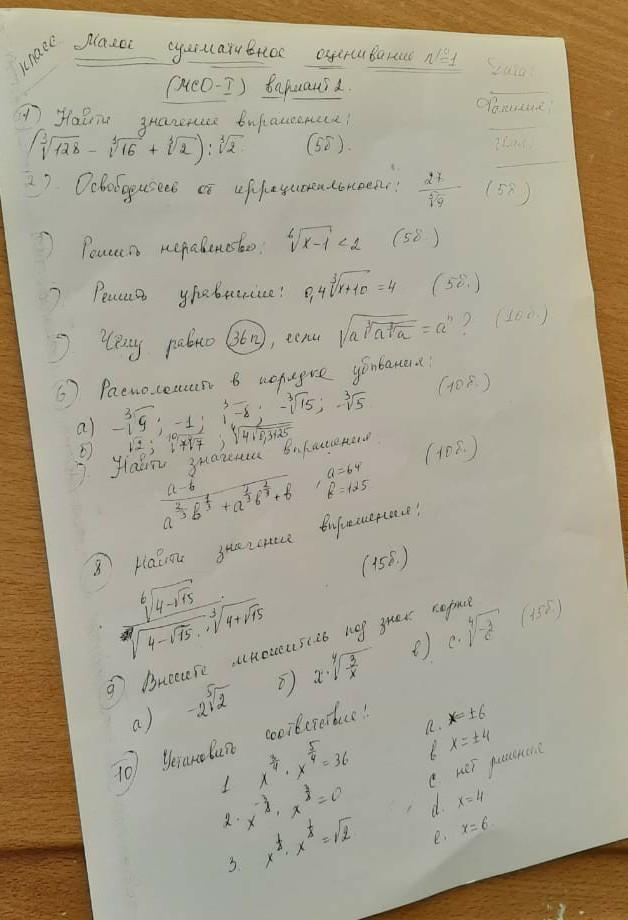 класс
Малое суммативное оценивание №1
(МСО-I) вариант 2.
Дата:
Фамилия:
Имя:
1) Найти значение выражения:
(∛128 - ∛16 + ∛2) : ∛2. (5б).
2). Освободитесь от иррациональности: 27/∛9 (5б)
) Решить неравенство: ⁶√(x-1) < 2 (5б.)
) Решить уравнение: 0,4∛(x+10) = 4 (5б.)
) Чему равно (36n), если √(a∛(a∛a)) = aⁿ? (10б.)
6) Расположить в порядке убывания:
а) -∛9; -1; ∛-8; -∛15; -∛5. (10б.)
б) √2;
Найти значение выражения.
a-b, a=64 (10б.)
b=125
8 Найти значение выражения:
⁶√(4-√15) (15б.)
√(4-√15) · ∛(4+√15)
9) Внесите множитель под знак корня
а) -2⁵√2 б) x·⁴√(3/x) в) c·⁴√(-3/c) (15б.)
10 Установить соответствие!
1. x^(3/4) · x^(5/4) = 36
2. x^(-3/8) · x^(3/8) = 0
3. x^(1/8) · x^(1/8) = √2
a. x = ±6
b x = ±4
c. нет решения
d. x=4
e. x=6.